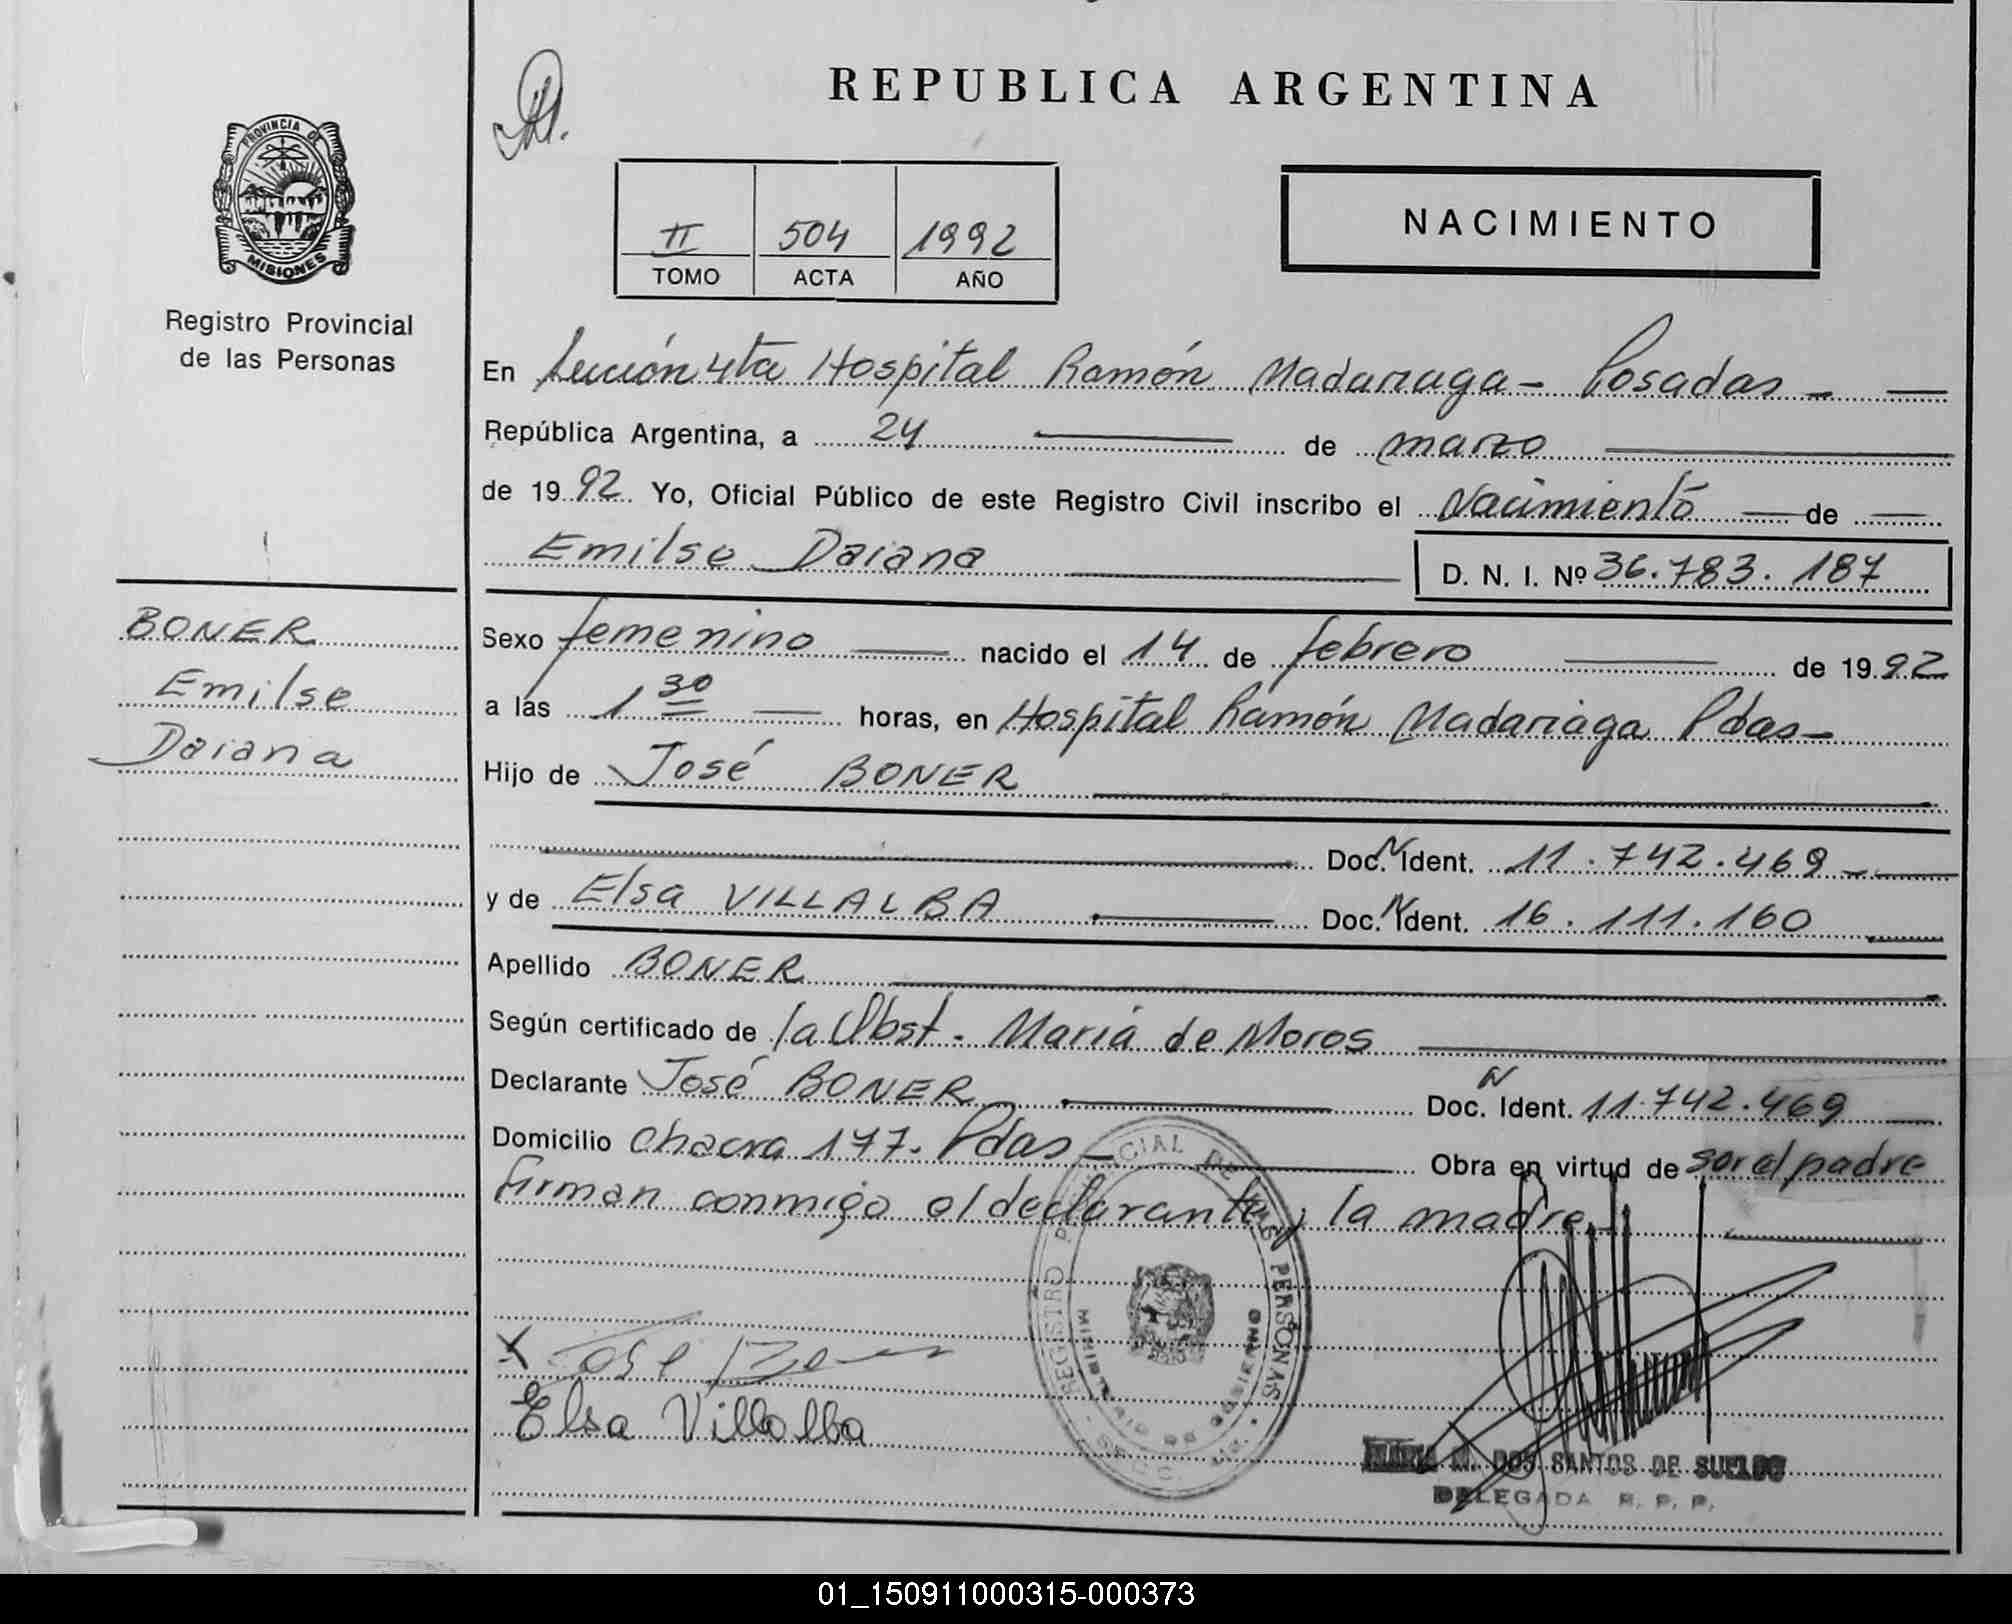 REPUBLICA ARGENTINA
PROVINCIA DE
MISIONES
Registro Provincial
de las Personas
II 504 1992
TOMO ACTA AÑO
NACIMIENTO
En Sección 4ta Hospital Ramón Madariaga - Posadas -
República Argentina, a 24 de marzo
de 1992 Yo, Oficial Público de este Registro Civil inscribo el Nacimiento de
Emilse Daiana
D. N. I. Nº 36.783.187
BONER
Emilse
Daiana
Sexo femenino nacido el 14 de febrero de 1992
a las 1 30 horas, en Hospital Ramón Madariaga Pdas -
Hijo de José BONER
Doc. N Ident. 11.742.469
y de Elsa VILLALBA Doc. N Ident. 16.111.160
Apellido BONER
Según certificado de la Obst. Maria de Moros
Declarante José BONER Doc. N Ident. 11.742.469
Domicilio Chacra 177. Pdas - Obra en virtud de ser el padre
Firman conmigo el declarante y la madre.
REGISTRO PROVINCIAL DE LAS PERSONAS
MINISTERIO DE GOBIERNO
x José Boner
Elsa Villalba
MARIA M. DOS SANTOS DE SUELDO
DELEGADA R. P. P.
01_150911000315-000373